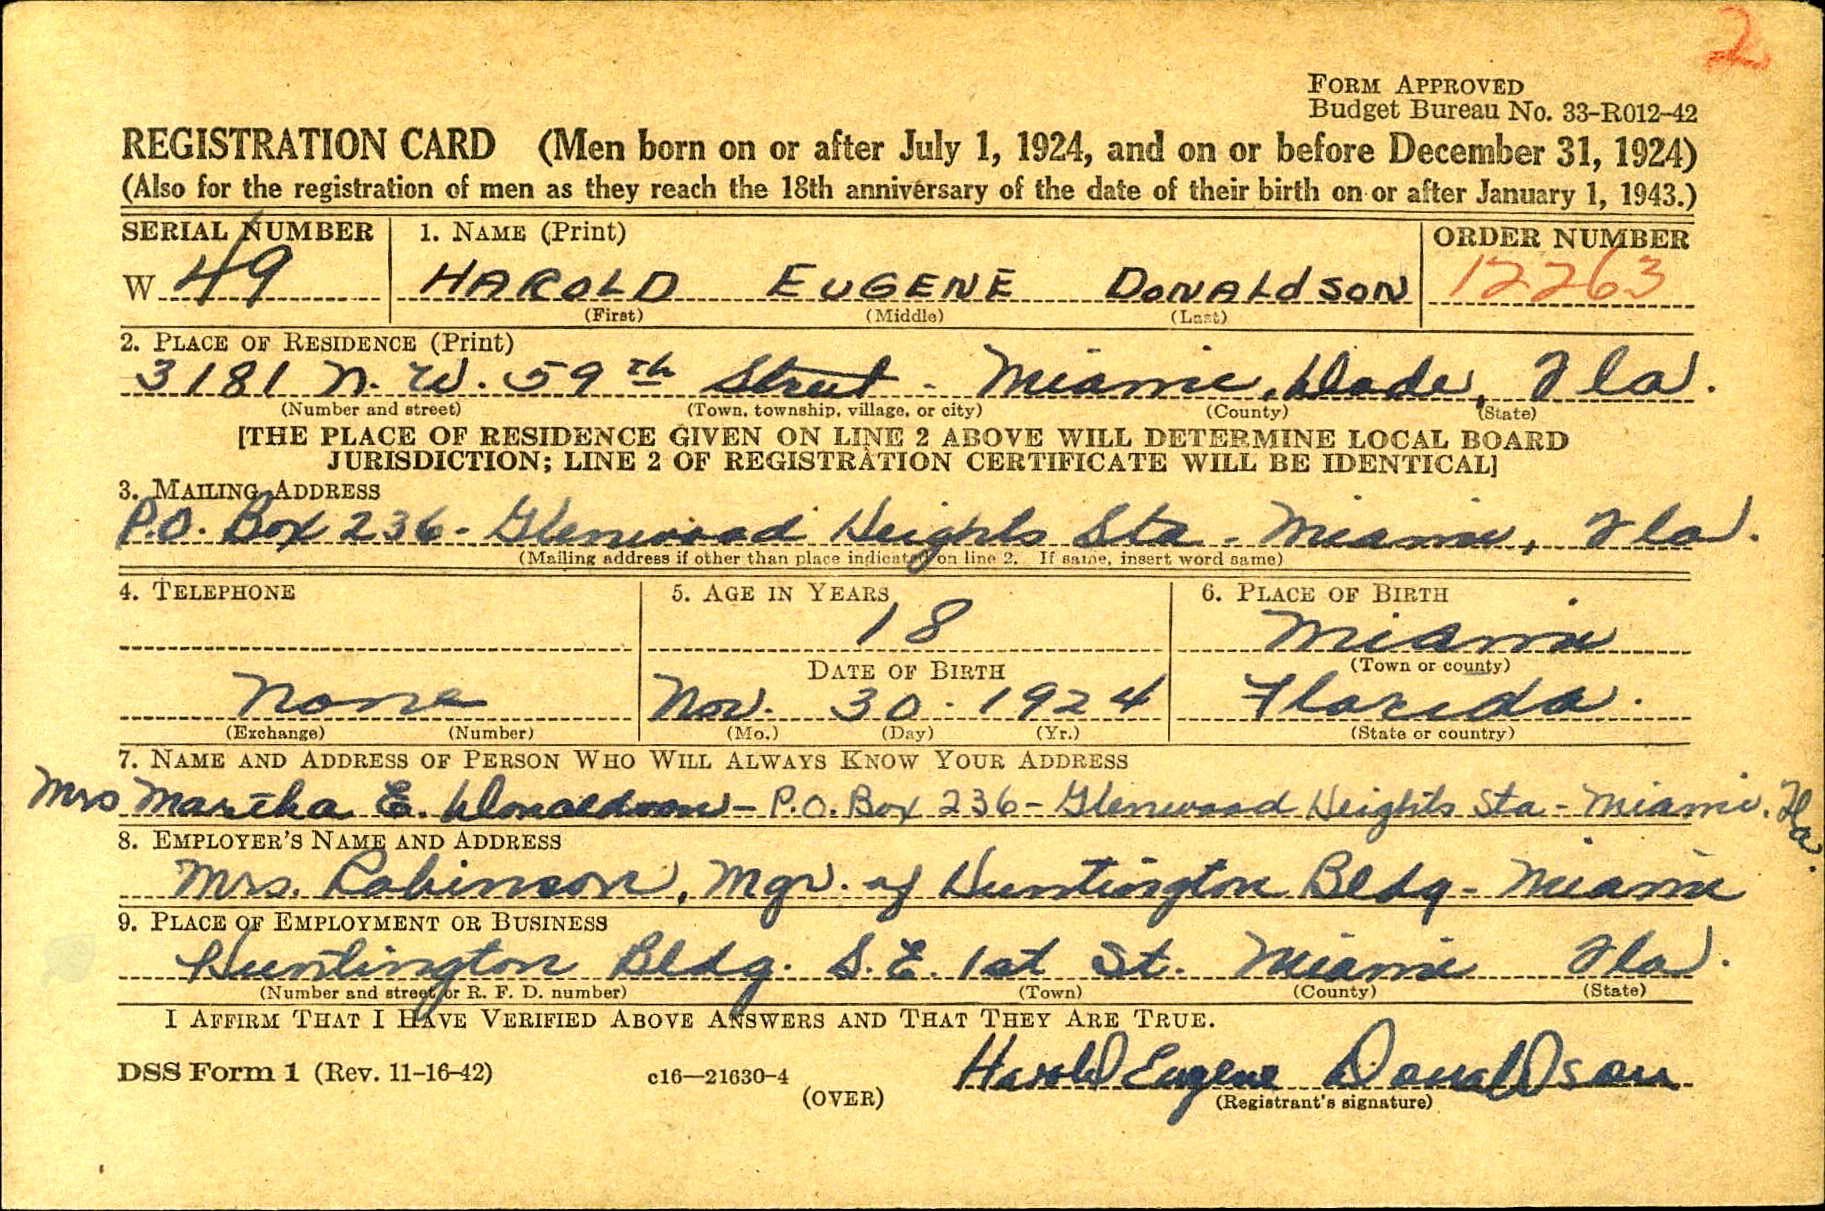 2
FORM APPROVED
Budget Bureau No. 33-R012-42
REGISTRATION CARD (Men born on or after July 1, 1924, and on or before December 31, 1924)
(Also for the registration of men as they reach the 18th anniversary of the date of their birth on or after January 1, 1943.)
SERIAL NUMBER 1. NAME (Print) ORDER NUMBER
W 49 HAROLD EUGENE DONALdSON 12263
(First) (Middle) (Last)
2. PLACE OF RESIDENCE (Print)
3181 N. W. 59th Street - Miami, Dade, Fla.
(Number and street) (Town, township, village, or city) (County) (State)
[THE PLACE OF RESIDENCE GIVEN ON LINE 2 ABOVE WILL DETERMINE LOCAL BOARD
JURISDICTION; LINE 2 OF REGISTRATION CERTIFICATE WILL BE IDENTICAL]
3. MAILING ADDRESS
P.O. Box 236 - Glenwood Heights Sta - Miami, Fla.
(Mailing address if other than place indicated on line 2. If same, insert word same)
4. TELEPHONE 5. AGE IN YEARS 6. PLACE OF BIRTH
18 Miami
DATE OF BIRTH (Town or county)
None Nov. 30. 1924 Florida.
(Exchange) (Number) (Mo.) (Day) (Yr.) (State or country)
7. NAME AND ADDRESS OF PERSON WHO WILL ALWAYS KNOW YOUR ADDRESS
Mrs Martha E. Donaldson - P.O. Box 236 - Glenwood Heights Sta - Miami. Fla.
8. EMPLOYER'S NAME AND ADDRESS
Mrs. Robinson, Mgr. of Huntington Bldg - Miami
9. PLACE OF EMPLOYMENT OR BUSINESS
Huntington Bldg. S. E. 1st St. Miami Fla.
(Number and street or R. F. D. number) (Town) (County) (State)
I AFFIRM THAT I HAVE VERIFIED ABOVE ANSWERS AND THAT THEY ARE TRUE.
DSS Form 1 (Rev. 11-16-42) c16—21630-4 Harold Eugene Donaldson
(OVER) (Registrant's signature)